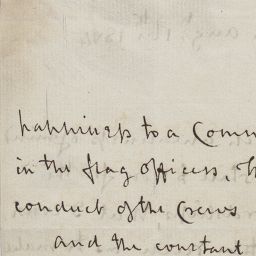 happiness to a Comm
in the flag officers, th
conduct of the Crews
and the constant